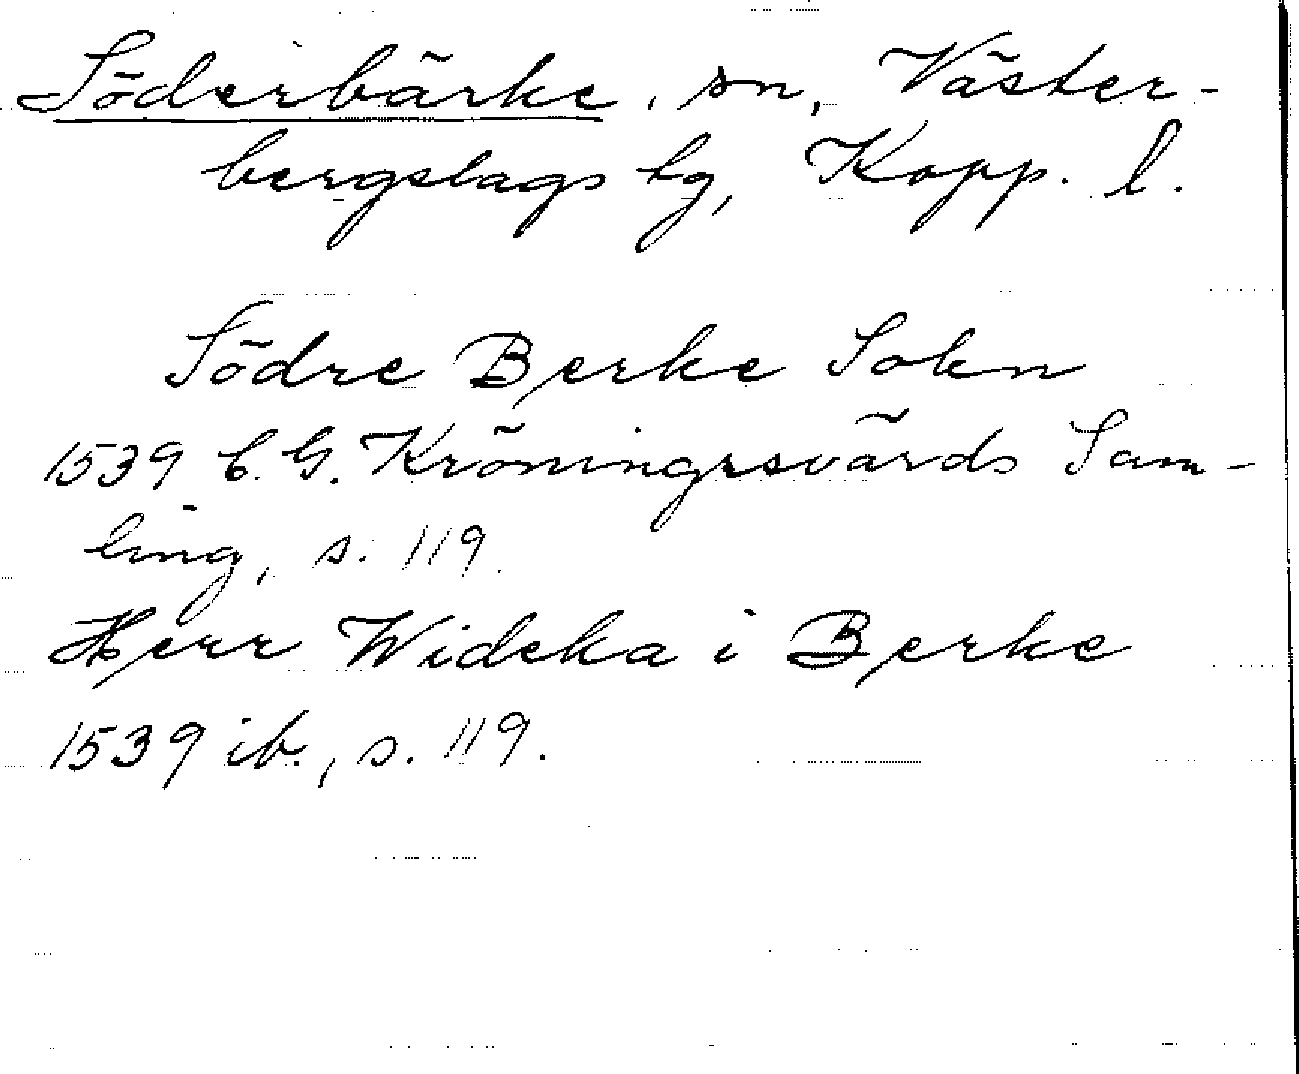 Söderbärke, sn, Väster-
bergslags hg, Kopp. l.
Södre Berke Sokn
1539 C. G. Kröningssvärds Sam-
ling, s. 119.
Herr Wideka i Berke
1539 ib., s. 119.